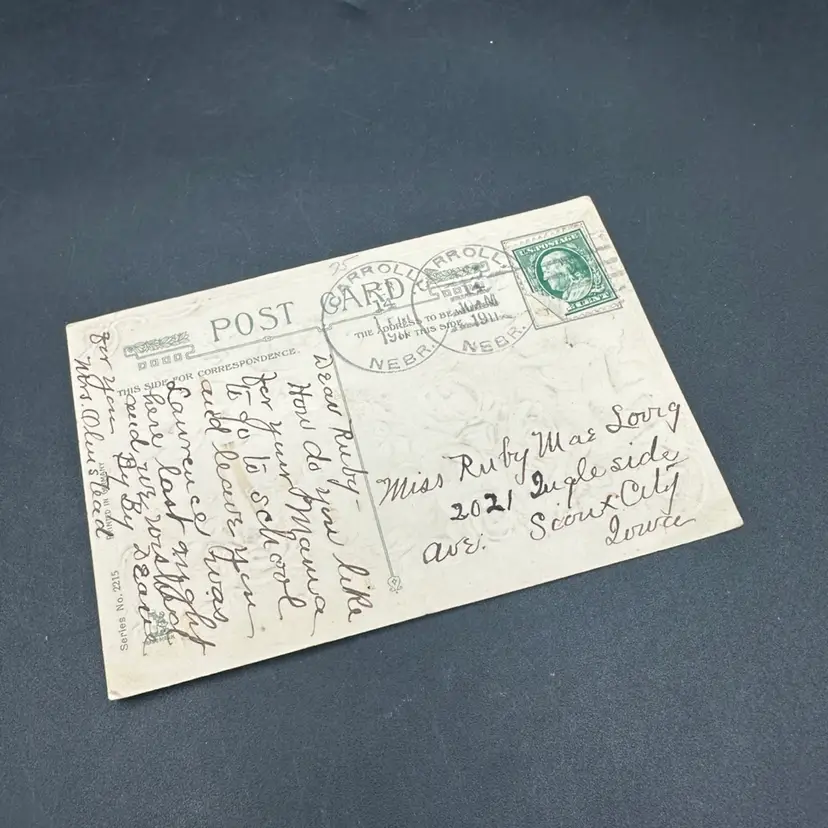 POST CARD
THIS SIDE FOR CORRESPONDENCE.
THE ADDRESS TO BE
ON THIS SIDE
25
CARROLL
14
1911
NEBR.
CARROLL
14
10 AM
1911
NEBR.
U.S. POSTAGE
1 CENT
Dear Ruby-
How do you like
for your Mama
to go to school
and leave you
Lawrence was
here last night
said we
By By
for you
Mrs.
Miss Ruby Mae Lovig
2021 Ingleside
Ave. Sioux City
Iowa
PRINTED IN GERMANY
Series No. 2215